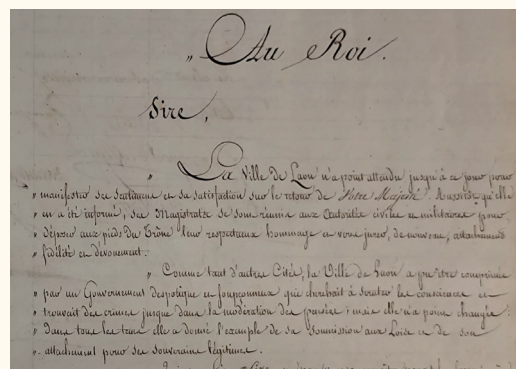 " Au Roi.
Sire,
" La Ville de Laon n'a point attendu jusqu'à ce jour pour
" manifester ses sentimens et sa satisfaction sur le retour de Votre Majesté. Aussitôt qu'elle
" en a été informée, ses Magistrats se sont réunis aux Autorités civiles et militaires pour
" déposer aux pieds du Trône leurs respectueux hommages et vous jurer, de nouveau, attachement
" fidélité et dévouement.
" Comme tant d'autres Cités, la Ville de Laon a pu être comprimée
" par un Gouvernement despotique et soupçonneux qui cherchait à scruter les consciences et
" trouvait des crimes jusques dans la modération des pensées ; mais elle n'a point changée :
" dans tous les tems elle a donné l'exemple de sa soumission aux Loix et de son
" attachement pour ses souverains légitimes.